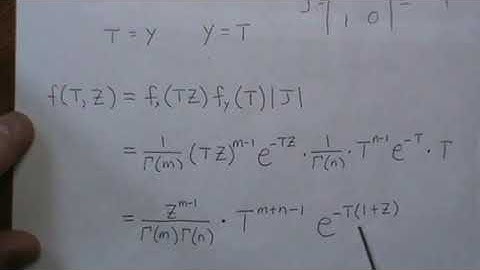 T = Y    Y = T
| 1 0 |
f(T, Z) = fₓ(TZ) f_y(T) |J|
= 1/Γ(m) (TZ)^{m-1} e^{-TZ} · 1/Γ(n) · T^{n-1} e^{-T} · T
= Z^{m-1}/Γ(m)Γ(n) · T^{m+n-1} e^{-T(1+Z)}